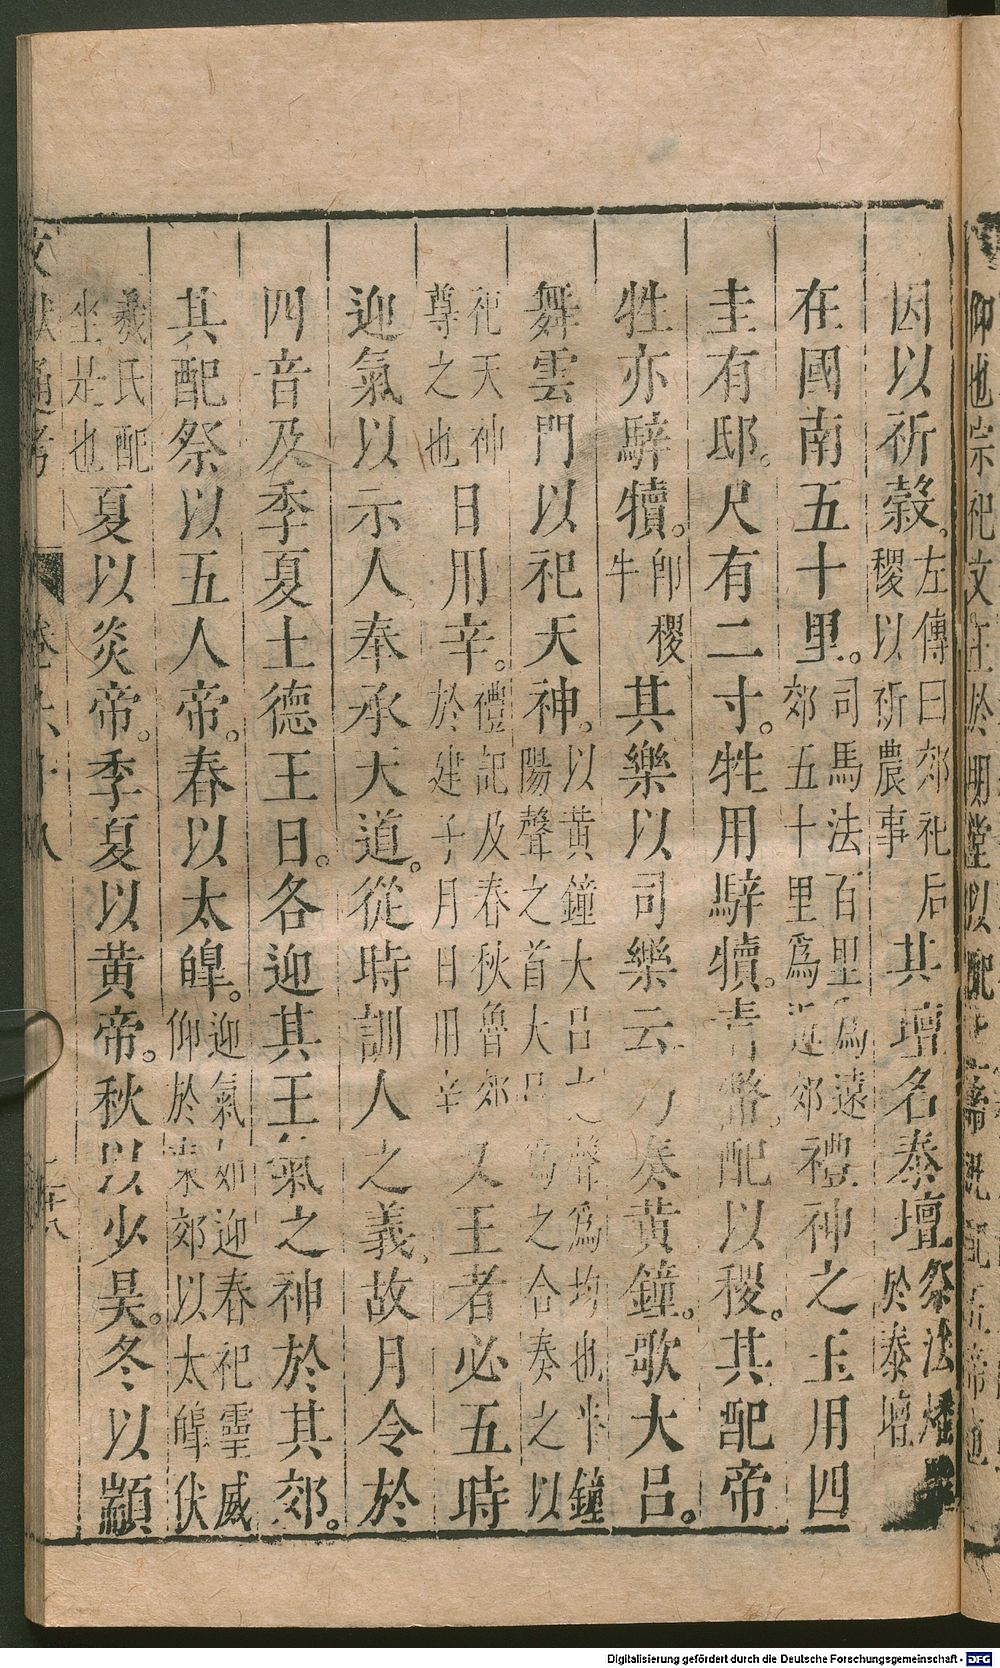 因以祈榖。左傳曰郊祀后稷以祈農事其壇名泰壇祭法燔於泰壇
在國南五十里。司馬法百里爲遠郊五十里爲近郊禮神之玉用四
圭有邸。尺有二寸。牲用騂犢。青幣。配以稷。其配帝
牲亦騂犢。卽稷牛其樂以司樂云乃奏黄鐘。歌大呂。
舞雲門以祀天神。以黄鐘大呂之聲爲均也半鐘陽聲之首大呂爲之合奏之以
祀天神尊之也日用辛。禮記及春秋魯郊於建子月日用辛又王者必五時
迎氣以示人奉承天道。從時訓人之義故月令於
四音及季夏土德王日。各迎其王氣之神於其郊。
其配祭以五人帝。春以太皥。迎氣如迎春祀靈威仰於東郊以太皥伏
羲氏配坐是也夏以炎帝。季夏以黄帝。秋以少昊。冬以顓
文獻通考 卷六十八 二十八
仰也宗祀文王於明堂以配
Digitalisierung gefördert durch die Deutsche Forschungsgemeinschaft - DFG